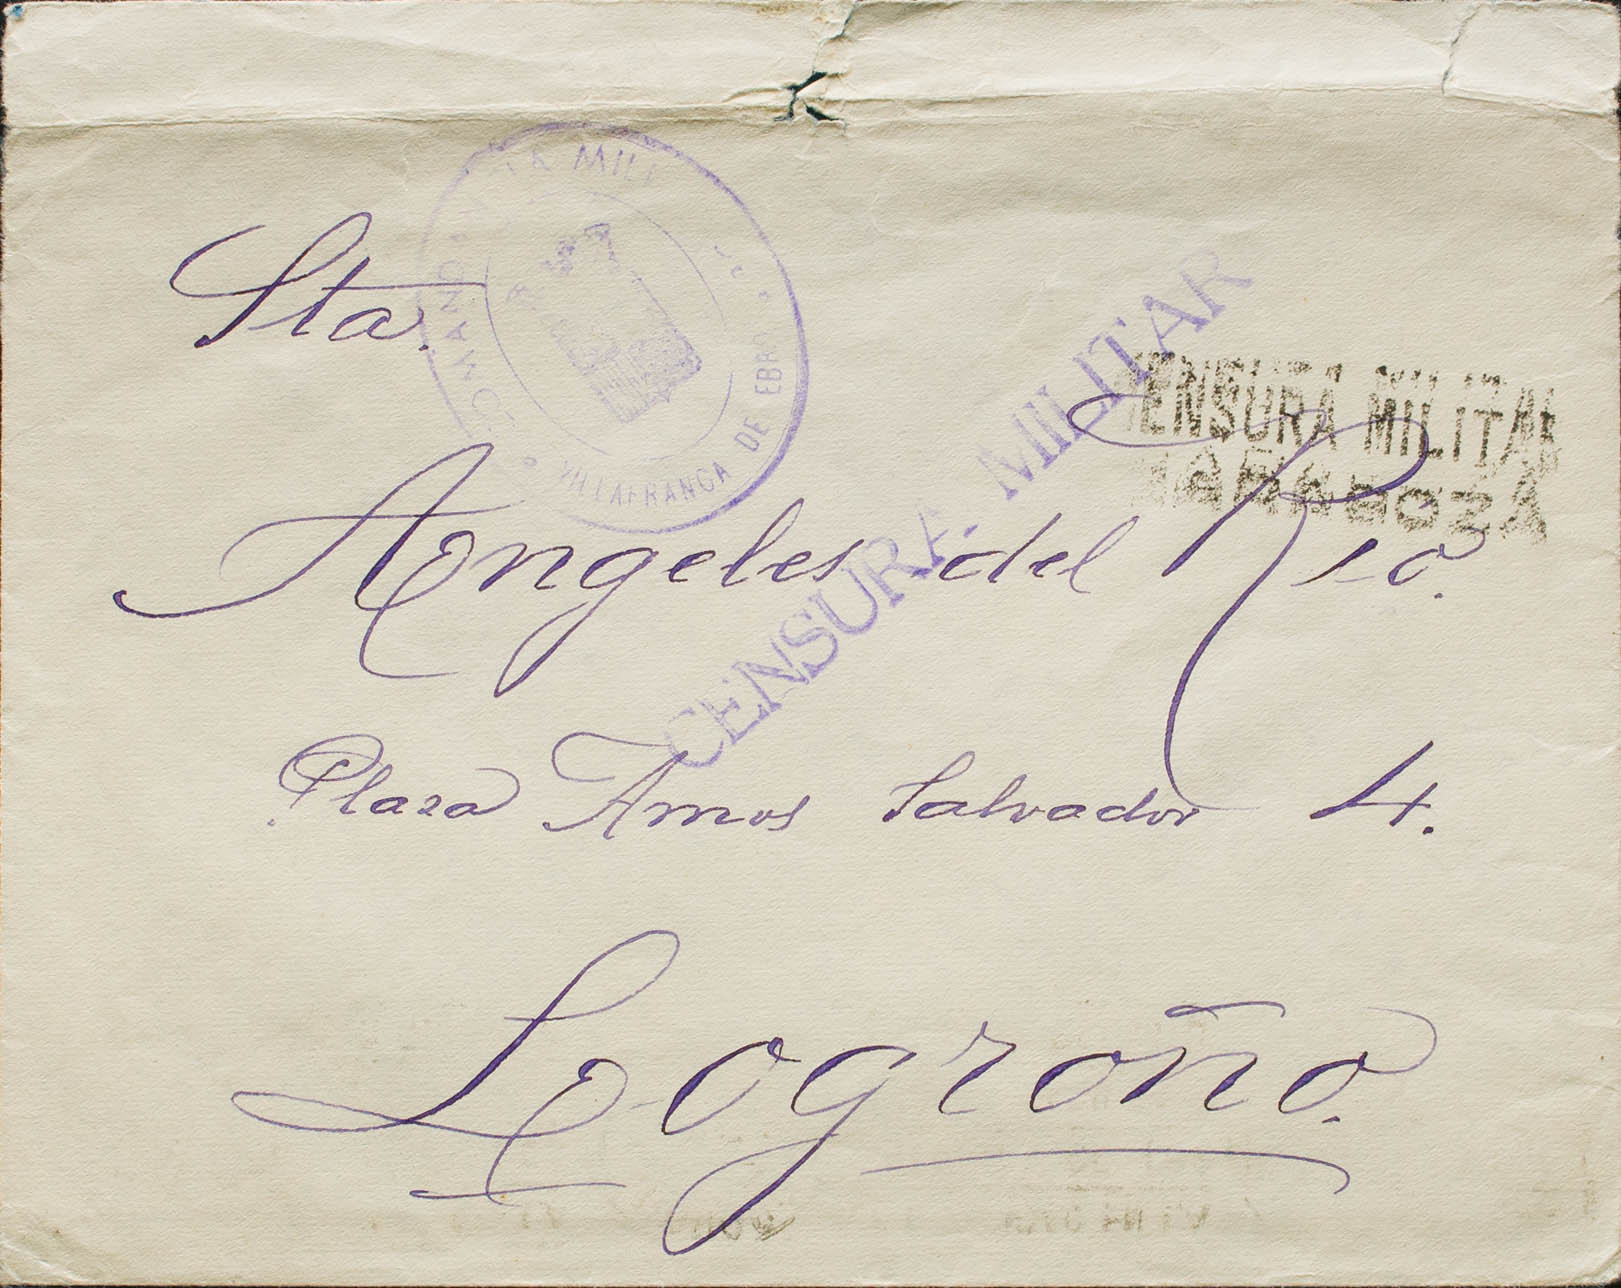 VILLAFRANCA DE EBRO
Sta.
CENSURA MILITAR
CENSURA MILITAR
ZARAGOZA
Angeles del Rio.
Plaza Amos Salvador 4.
Logroño.